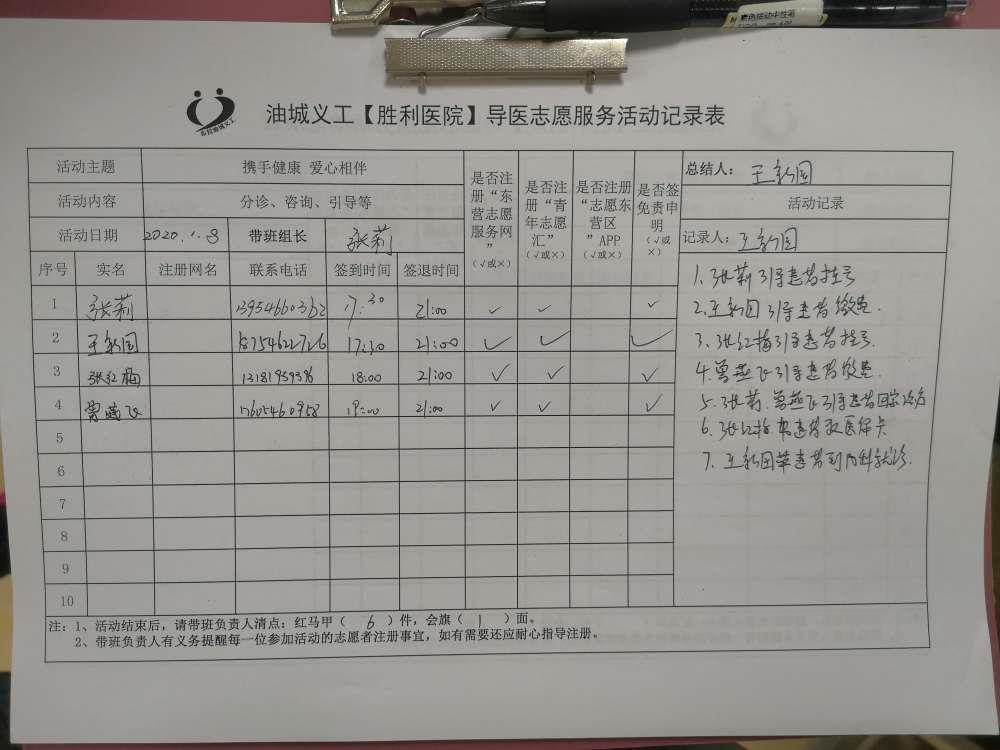 黑色活动中性笔
东营油城义工
油城义工【胜利医院】导医志愿服务活动记录表
活动主题 携手健康 爱心相伴
活动内容 分诊、咨询、引导等
活动日期 2020.1.8 带班组长 张莉
是否注册“东营志愿服务网”（√或×）
是否注册“青年志愿汇”（√或×）
是否注册“志愿东营区”APP（√或×）
是否签免责申明（√或×）
序号 实名 注册网名 联系电话 签到时间 签退时间
1 张莉 13954660362 17:30 21:00 ✓ ✓ ✓
2 王新国 18754622726 17:30 21:00 ✓ ✓ ✓
3 张红梅 18:00 21:00 ✓ ✓ ✓
4 曾燕飞 17605460958 19:00 21:00 ✓ ✓ ✓
5
6
7
8
9
10
总结人： 王新国
活动记录
记录人： 王新国
1.张莉引导患者挂号
2.王新国引导患者缴费.
3.张红梅引导患者挂号.
4.曾燕飞引导患者缴费.
5.张莉.曾燕飞引导患者回家
6.张红梅帮患者取医保卡
7.王新国带患者到内科就诊.
注：1、活动结束后，请带班负责人清点：红马甲（ 6 ）件，会旗（ 1 ）面。
2、带班负责人有义务提醒每一位参加活动的志愿者注册事宜，如有需要还应耐心指导注册。